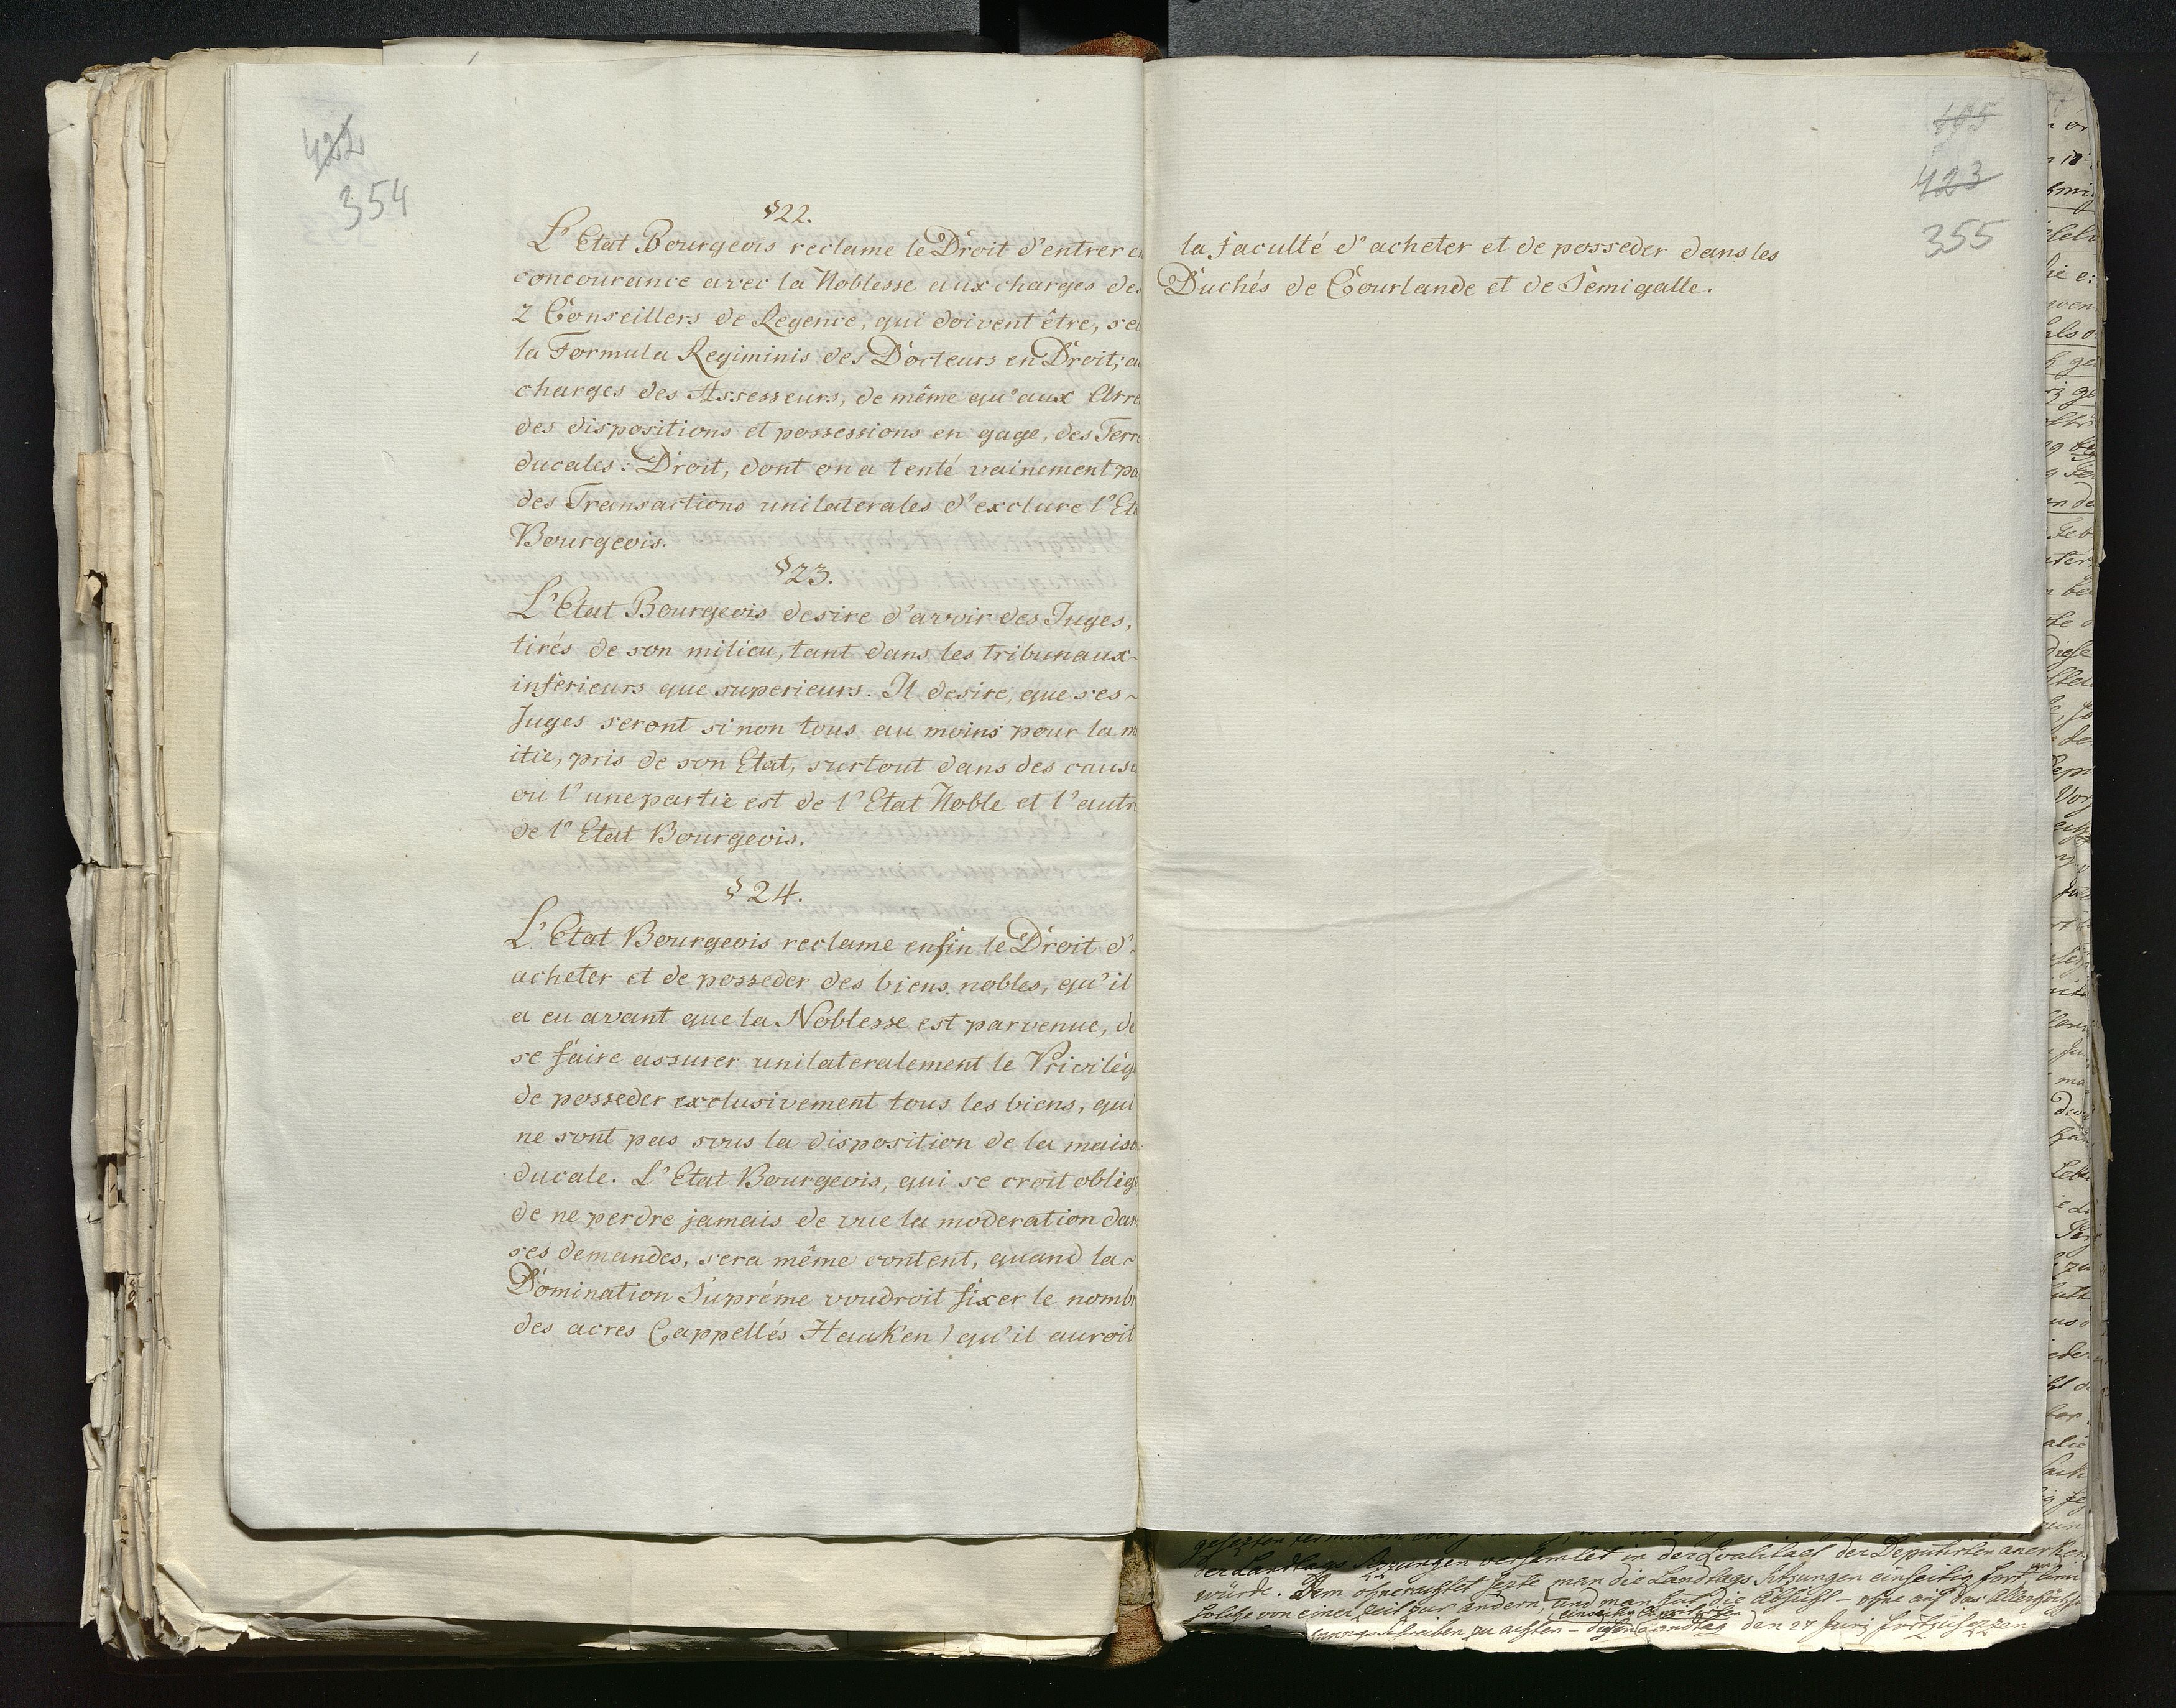 422
354
§22.
L'Etat Bourgeois reclame le Droit d'entrer en
concourance avec la Noblesse aux charges des
2 Conseillers de Regence, qui doivent être, sel
la Formula Regiminis des Docteurs en Droit; a
charges des Assesseurs, de même qu'aux Arre
des dispositions et possessions en gage, des Terre
ducales: Droit, dont on a tenté vainement pa
des Transactions unilaterales d'exclure l'Eta
Bourgeois.
§23.
L'Etat Bourgeois desire d'avoir des Juges,
tirés de son milieu, tant dans les tribunaux
inferieurs que superieurs. Il desire, que ses
Juges seront si non tous au moins pour la m
itié, pris de son Etat, surtout dans des cause
ou l'une partie est de l'Etat Noble et l'autr
de l'Etat Bourgeois.
§24.
L'Etat Bourgeois reclame enfin le Droit d'
acheter et de posseder des biens nobles, qu'il
a eu avant que la Noblesse est parvenue, de
se faire assurer unilateralement le Privilèg
de posseder exclusivement tous les biens, qui
ne sont pas sous la disposition de la maiso
ducale. L'Etat Bourgeois, qui se croit oblig
de ne perdre jamais de vue la moderation dan
ses demandes, sera même content, quand la
Domination Supréme voudroit fixer le nomb
des acres (appellés Haaken) qu'il auroit
423
355
la faculté d'acheter et de posseder dans les
Duchés de Courlande et de Sémigalle.
der Landtags Sitzungen versamlet in der Qualitaet der Deputirten anerken
würde. Dem ohnerachtet sezte man die Landtags Sitzungen einseitig fort
solche von einer Zeit zur andern, und man hat die Absicht – ohne auf das Allerhöchst
zu achten – diesen Landtag den 27 Junj fortzusezzen